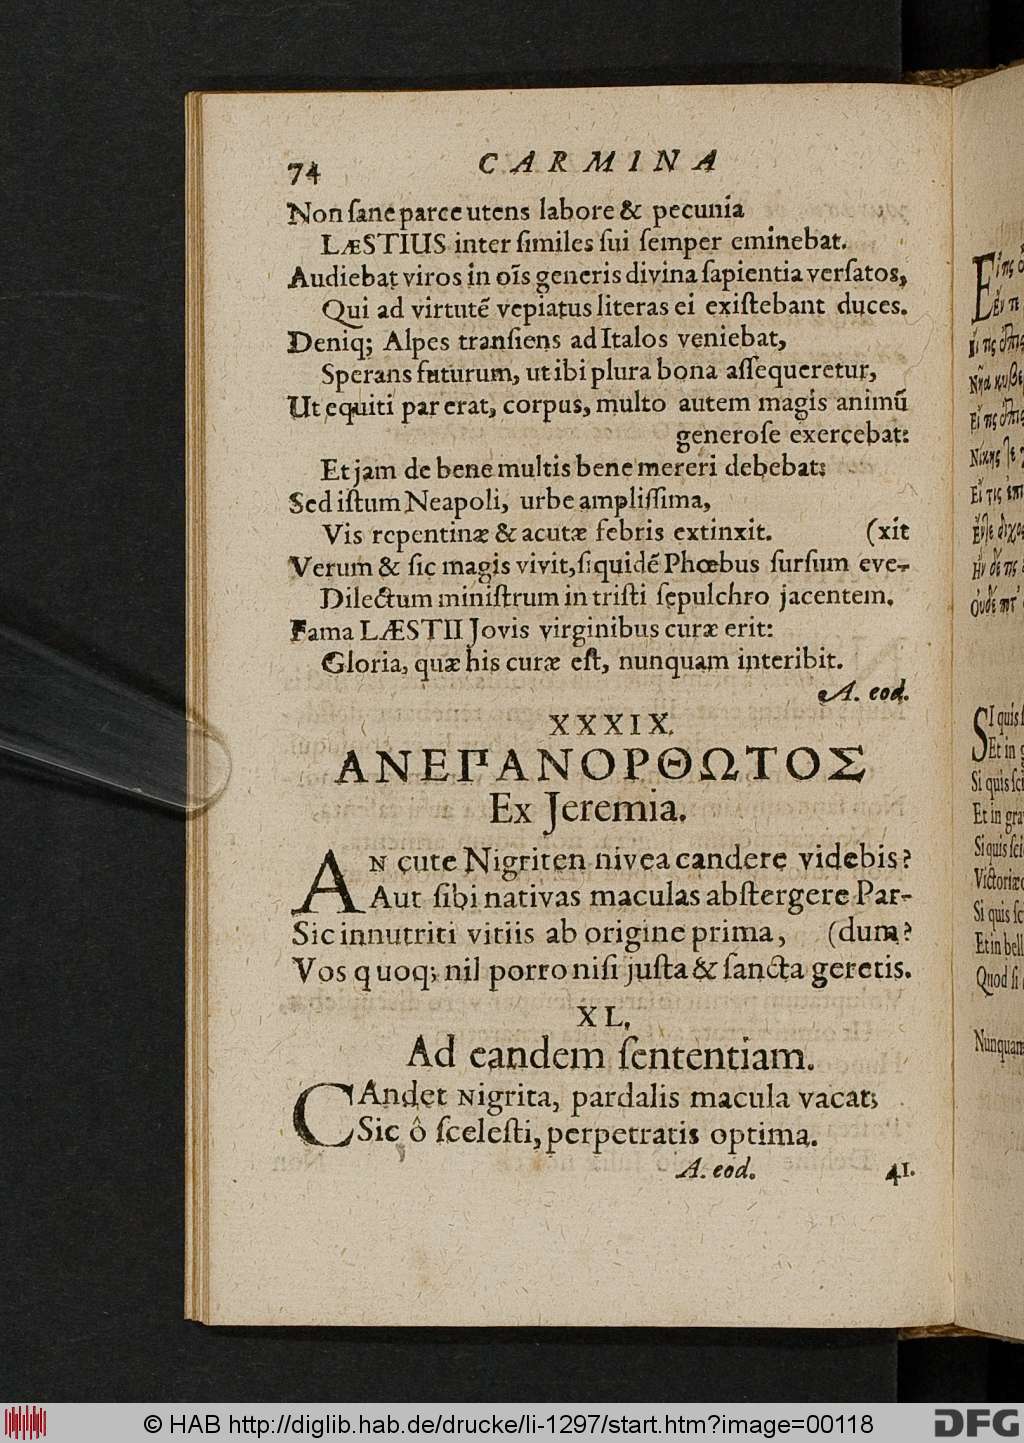 74 CARMINA
Non ſane parce utens labore & pecunia
LÆSTIUS inter ſimiles ſui ſemper eminebat.
Audiebat viros in oĩs generis divina ſapientia verſatos,
Qui ad virtutẽ vepiatus literas ei exiſtebant duces.
Deniq; Alpes tranſiens ad Italos veniebat,
Sperans futurum, ut ibi plura bona aſſequeretur,
Ut equiti par erat, corpus, multo autem magis animũ
generoſe exercebat:
Et jam de bene multis bene mereri debebat:
Sed iſtum Neapoli, urbe ampliſſima,
Vis repentinæ & acutæ febris extinxit. (xit
Verum & ſic magis vivit, ſiquidẽ Phœbus ſurſum eve-
Dilectum miniſtrum in triſti ſepulchro jacentem.
Fama LÆSTII Jovis virginibus curæ erit:
Gloria, quæ his curæ eſt, nunquam interibit.
A. eod.
XXXIX.
ΑΝΕΠΑΝΟΡΘΩΤΟΣ
Ex Jeremia.
AN cute Nigriten nivea candere videbis?
Aut ſibi nativas maculas abſtergere Par-
Sic innutriti vitiis ab origine prima, (dum?
Vos quoq; nil porro niſi juſta & ſancta geretis.
XL.
Ad eandem ſententiam.
CAndet Nigrita, pardalis macula vacat;
Sic ô ſceleſti, perpetratis optima.
A. eod. 41.
SI quis
Et in
Si quis ſci
Et in gra
Si quis ſci
Victoriæ
Si quis ſc
Et in bell
Quod ſi
Nunquam
© HAB http://diglib.hab.de/drucke/li-1297/start.htm?image=00118
DFG